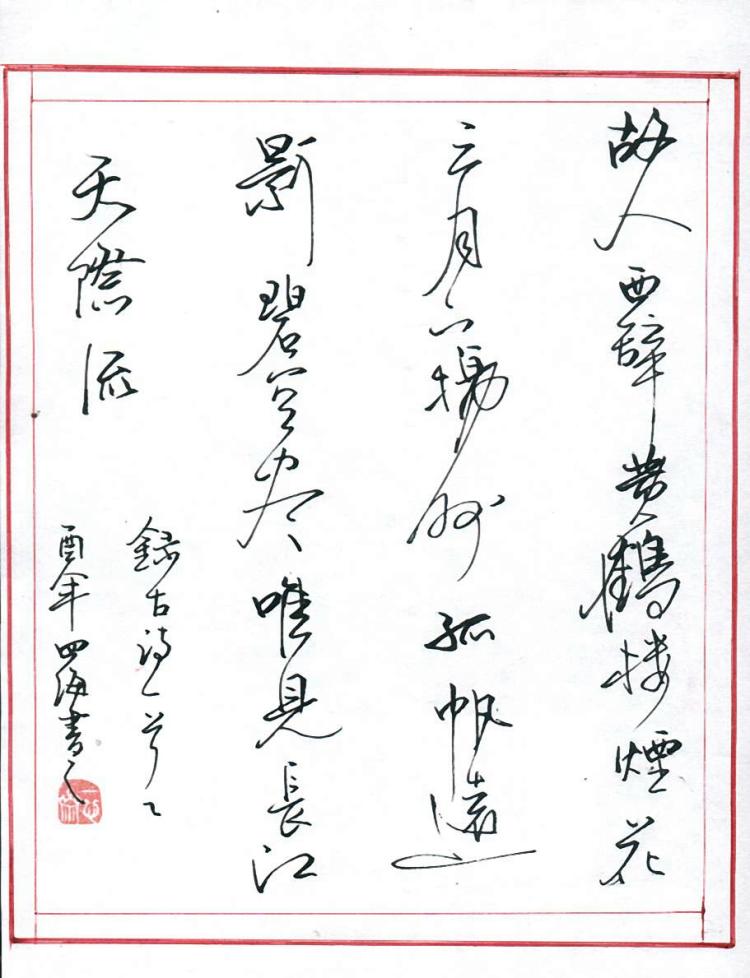 故人西辭黄鶴楼煙花
三月下揚州孤帆遠
影碧空尽唯見長江
天際流
録古诗一首乙
酉年四海書之